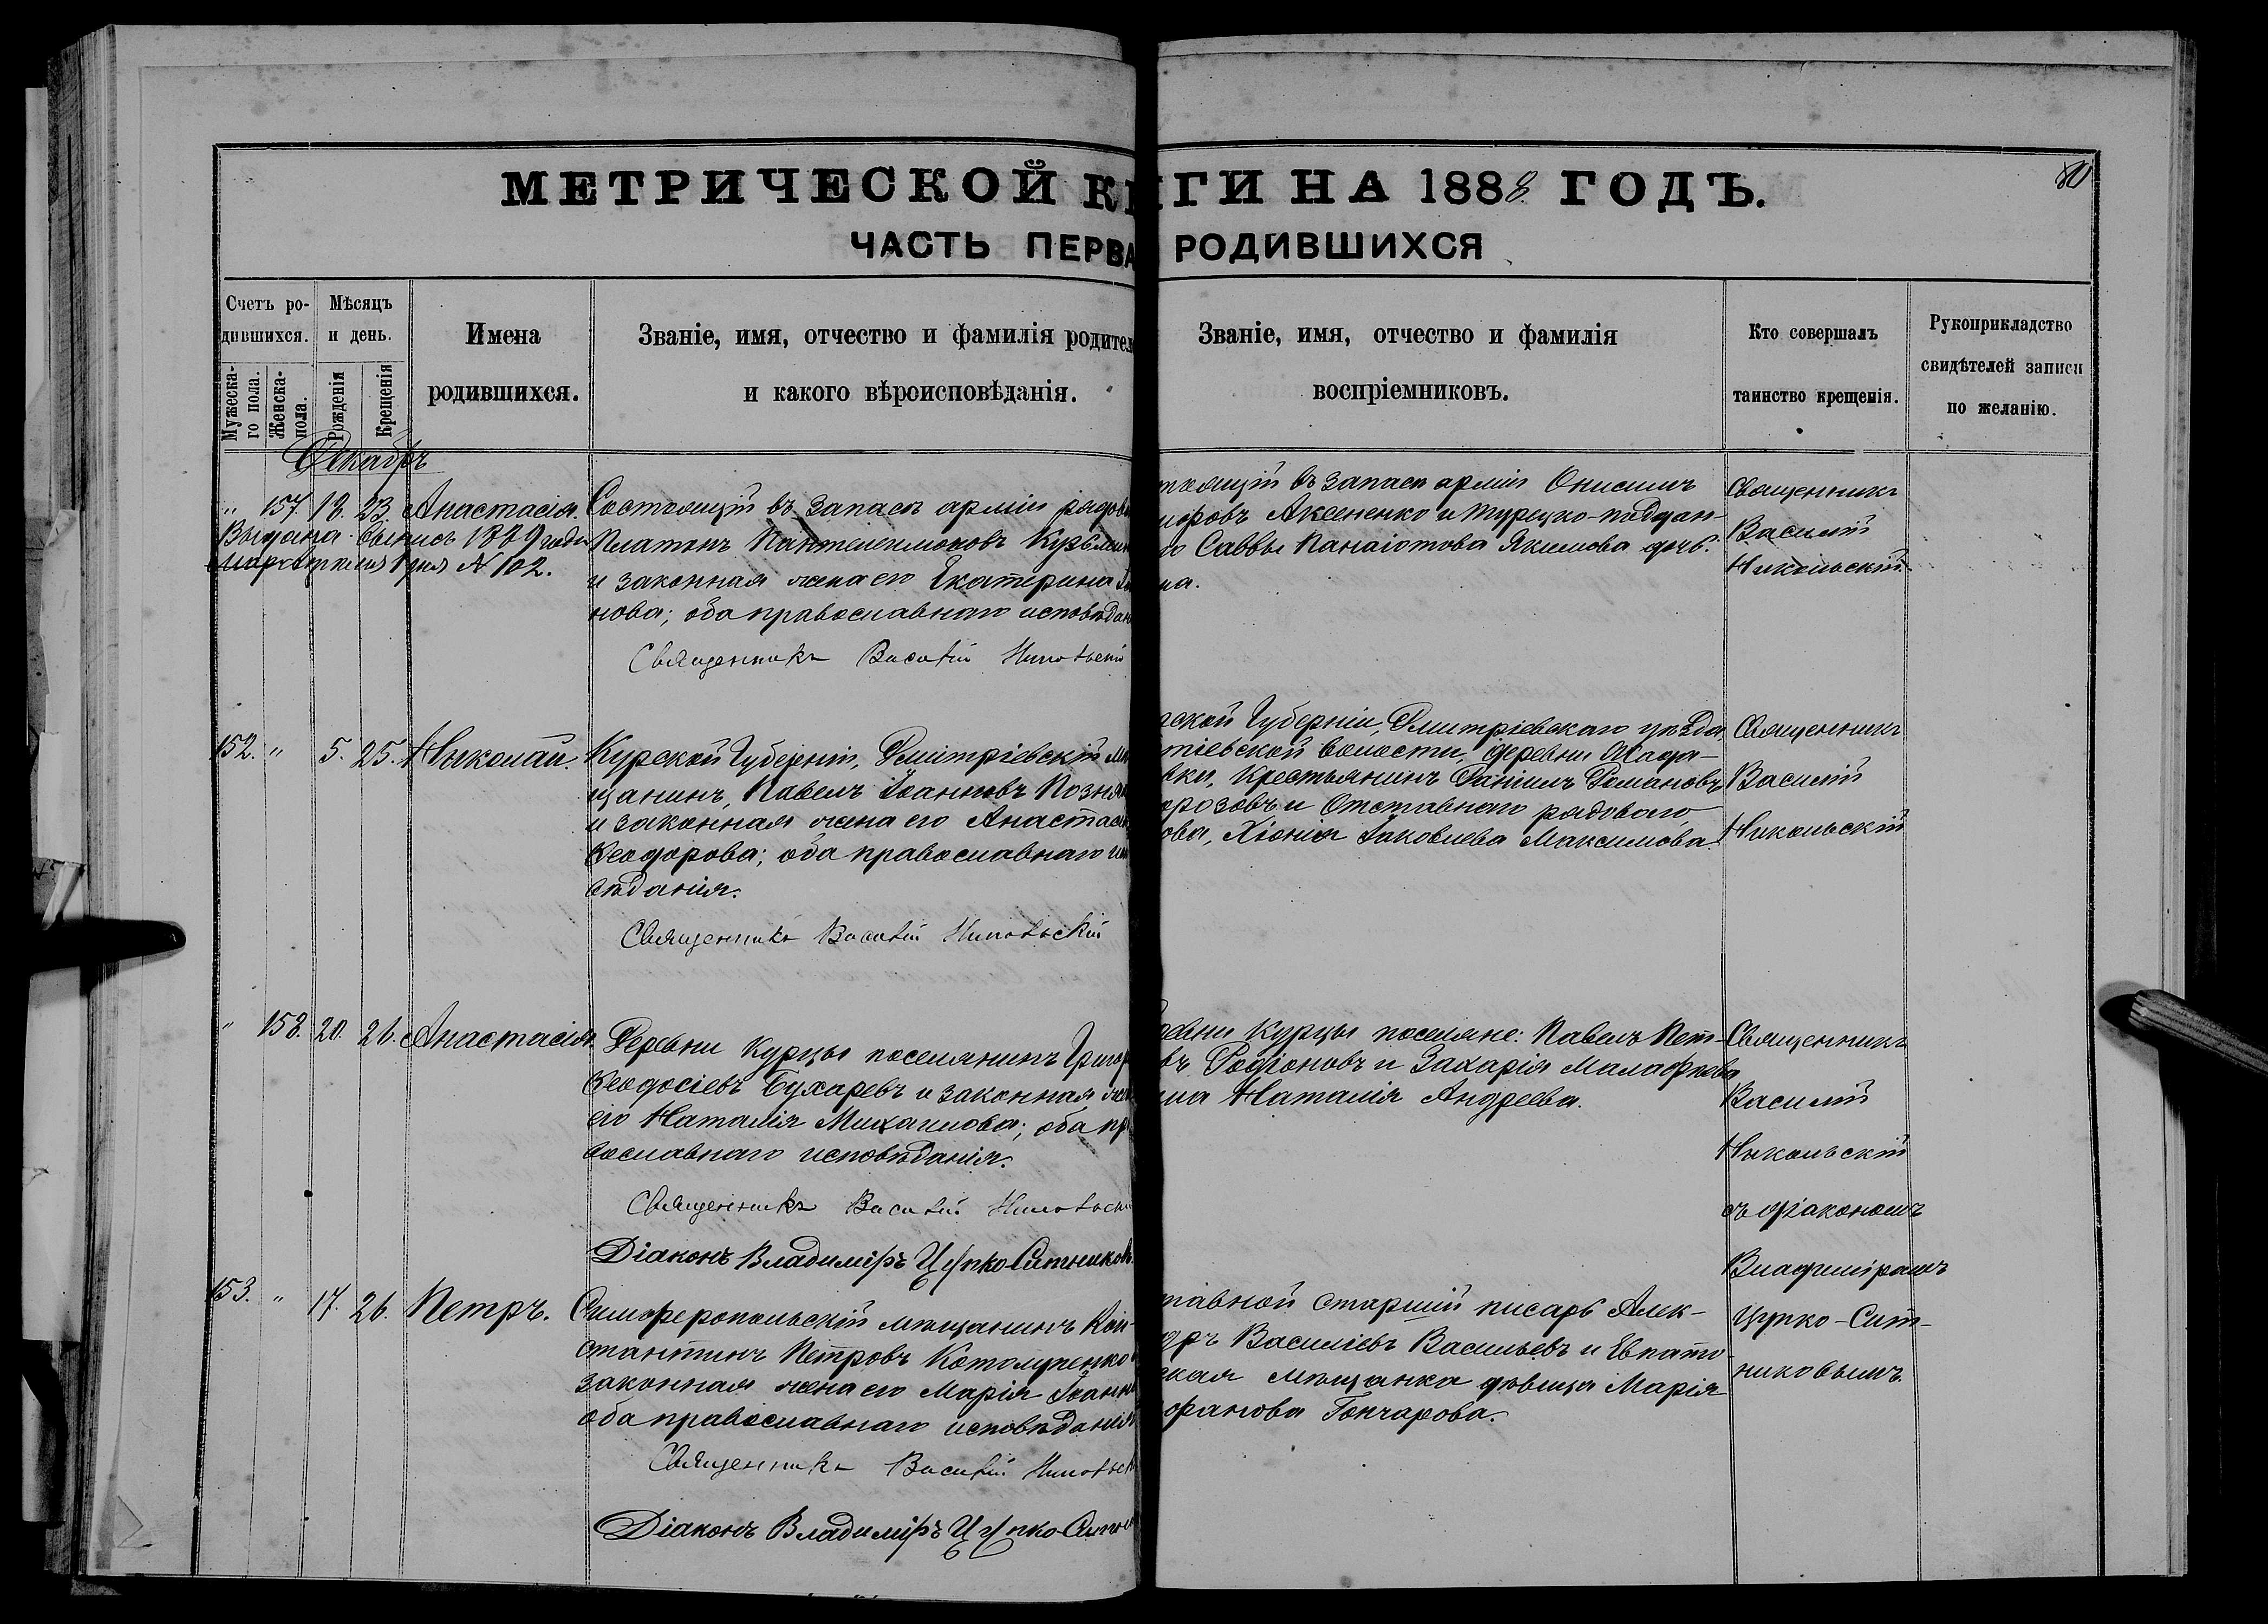 МЕТРИЧЕСКОЙ К ГИ НА 1888 ГОДЪ.
80
ЧАСТЬ ПЕРВА РОДИВШИХСЯ
Счетъ ро-
дившихся.
Мужеска-
го пола.
Женска-
пола.
Мѣсяцъ
и день.
Рожденія
Крещенія
Имена
родившихся.
Званіе, имя, отчество и фамилія родител
и какого вѣроисповѣданія.
Званіе, имя, отчество и фамилія
воспріемниковъ.
Кто совершалъ
таинство крещенія.
Рукоприкладство
свидѣтелей записи
по желанію.
Декабрь
" 157. 18. 23 Анастасія.
Выдана выпись 1889 года
Марта 1 дня N 102.
Состоящій въ запасѣ арміи рядов
Платонъ Пантелеимоновъ Кузьмин
и законная жена его Екатерина
нова; оба православнаго исповѣдан
Священникъ Василій Никольскій
тоящій въ запасѣ арміи Онисимъ
оровъ Аксененко и турецко-поддан-
го Саввы Панаіотова Якимова дочь.
на.
Священникъ
Василій
Никольскій.
152. " 5. 25. Николай.
Курской Губерніи, Дмитріевскій мѣ
щанинъ, Павелъ Іоанновъ Позня
и законная жена его Анастас
Ѳеодорова; оба православнаго ис
вѣданія.
Священникъ Василій Никольскій
ской Губерніи, Дмитріевскаго уѣзда,
тіевской волости, деревни
вки, крестьянинъ Даніилъ Романовъ
орозовъ и Отставнаго рядоваго
ова, Хіонія Іаковлева Максимова.
Священникъ
Василій
Никольскій
" 158. 20. 26. Анастасія.
Деревни Курцы поселянинъ Григор
Ѳеодосіевъ Бухаревъ и законная же
его Наталія Михаилова; оба пр
вославнаго исповѣданія.
Священникъ Василій Никольск
Діаконъ Владиміръ Цупко-Ситников
ревни Курцы поселяне: Павелъ Пет-
въ Родіоновъ и Захарія Малафѣева
на Наталія Андреева.
Священникъ
Василій
Никольскій
съ діакономъ
Владиміромъ
Цупко-Сит-
никовымъ.
153. " 17. 26. Петръ.
Симферопольскій мѣщанинъ Кон-
стантинъ Петровъ Котляренко
законная жена его Марія Іоанн
оба православнаго исповѣданія
Священникъ Василій Никольск
Діаконъ Владиміръ Цупко-Ситн
тавной старшій писарь Алек-
дръ Василіевъ Васильевъ и Евпато-
ская мѣщанка дѣвица Марія
офанова Гончарова.